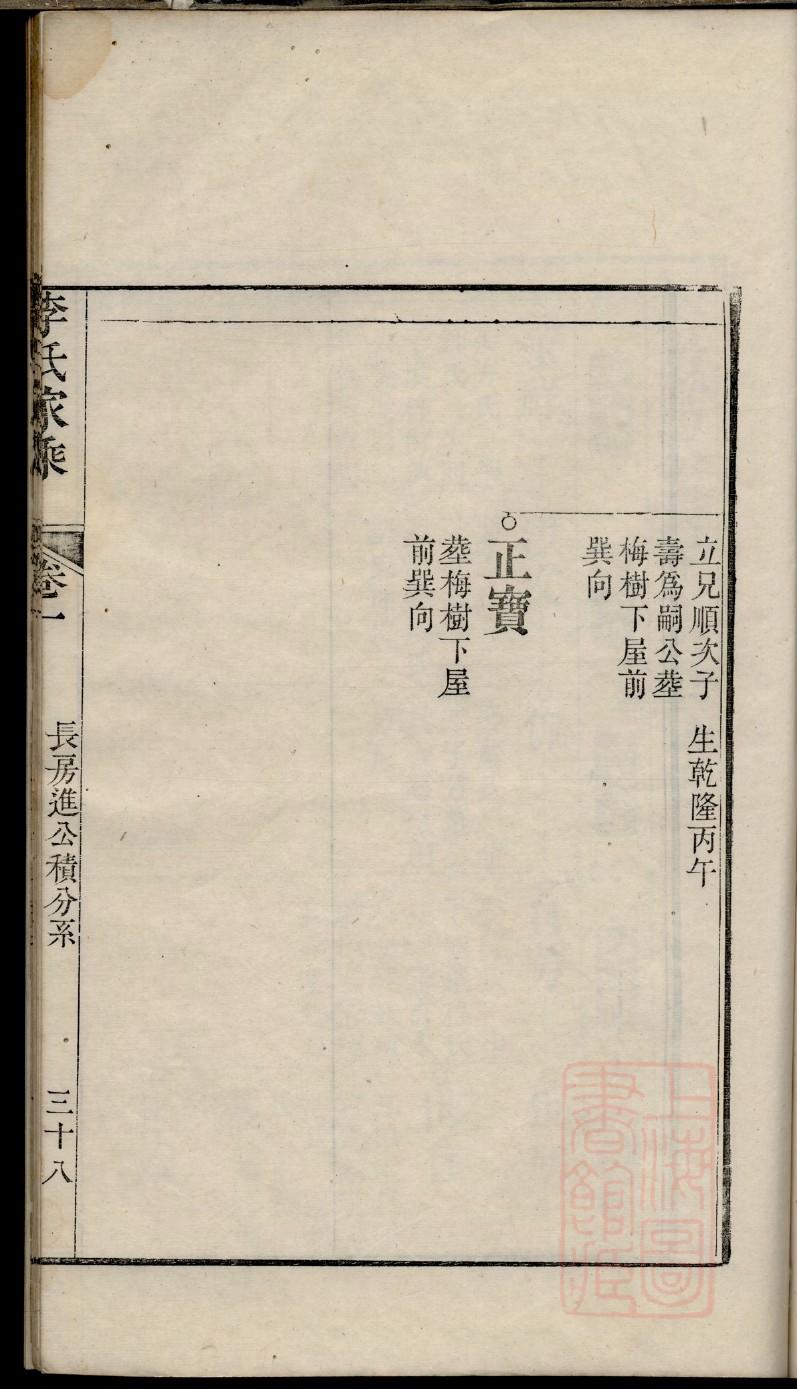 立兄順次子
壽爲嗣公塟
梅樹下屋前
巽向
生乾隆丙午
正寶
塟梅樹下屋
前巽向
李氏家乘
卷一
長房進公積分系
三十八
上海圖
書館藏